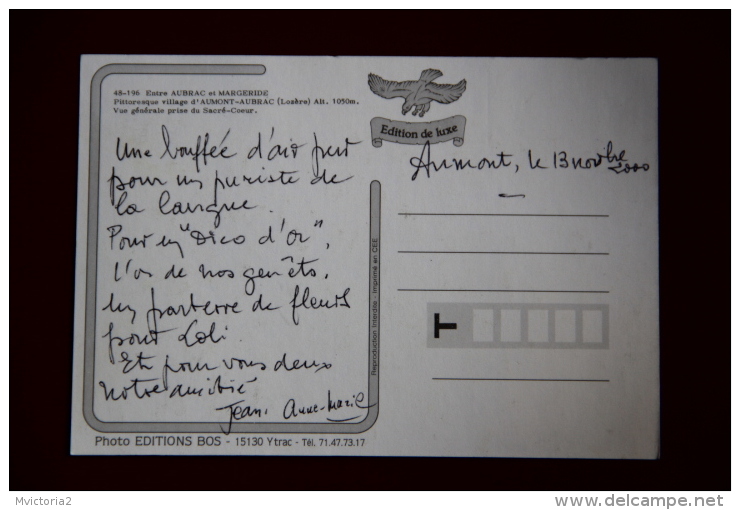 48-196 Entre AUBRAC et MARGERIDE
Pittoresque village d'AUMONT-AUBRAC (Lozère) Alt. 1050m.
Vue générale prise du Sacré-Coeur.
Edition de luxe
Une bouffée d'air pur
pour un puriste de
la langue.
Pour un "Dico d'or",
l'or de nos genêts,
un parterre de fleurs
pour Loli.
Et pour vous deux
notre amitié
Jean. Anne-Marie
Aumont, le 13 novbre
2000
Reproduction Interdite - Imprimé en CEE
T
Photo EDITIONS BOS - 15130 Ytrac - Tél. 71.47.73.17
Mvictoria2
http://www.delcampe.net